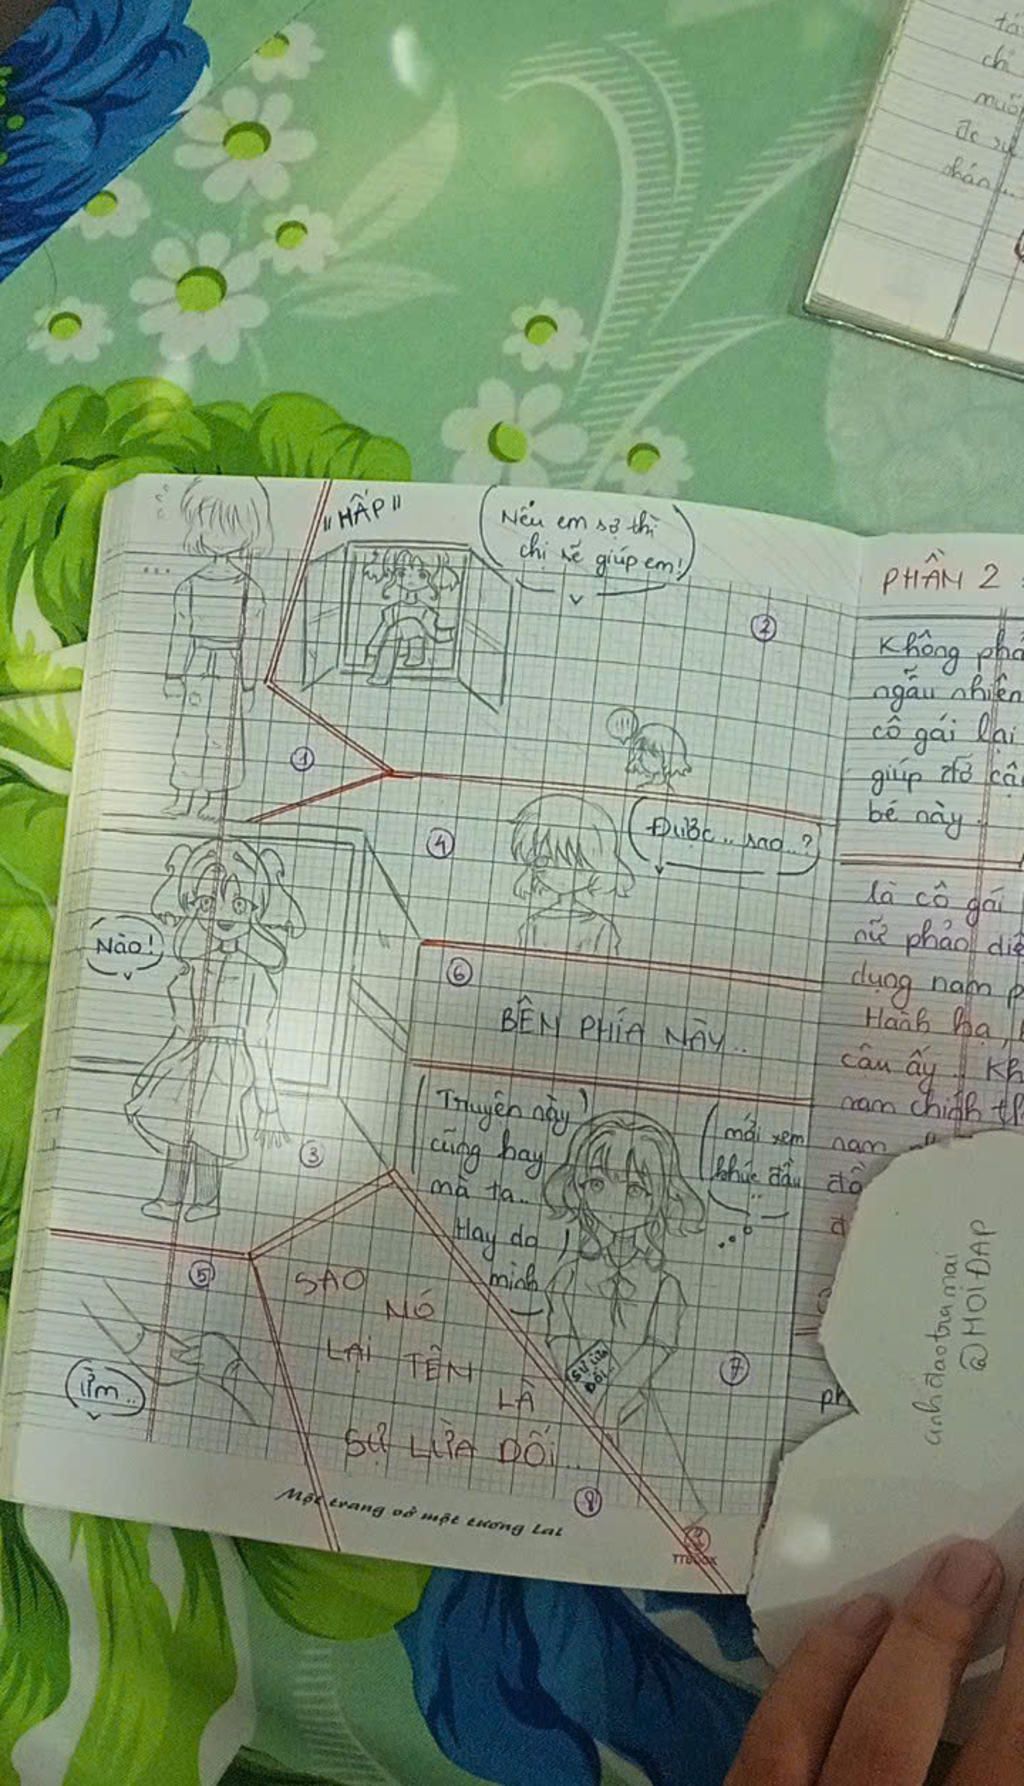 "HẤP"
Nếu em sợ thì
chị sẽ giúp em!
...
1
2
!!!
Nào!
3
4
Được.. sao..?
5
Ừm..
6
BÊN PHÍA NÀY..
Truyện này
cũng hay
mà ta..
Hay do
mình
mới xem
khúc đầu
..
SỰ LỪA
DỐI
7
SAO
NÓ
LẠI TÊN
LÀ
SỰ LỪA DỐI..
8
Một trang vở một tương lai
PHẦN 2
Không
ngẫu nhiên
cô gái lại
giúp đỡ
bé này.
là cô gái
nữ phảo
dụng nam
Hành hạ,
cậu ấy..
nam chính
nam
anhdaotramai
@MOIDAP
chỉ